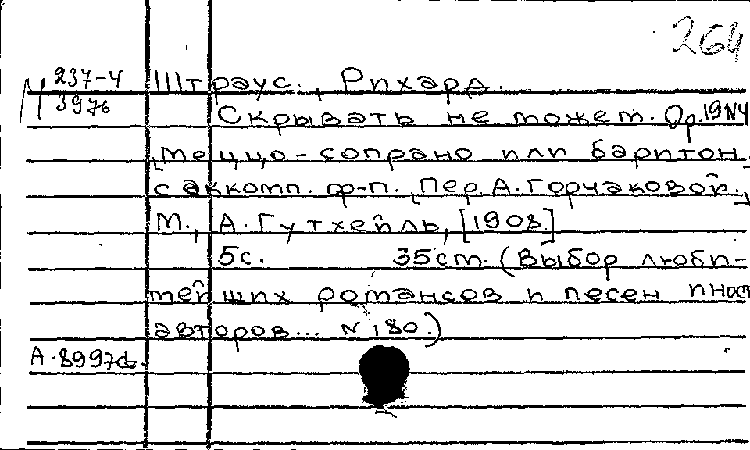 264
М 237-4 Штраус., Рихард.
3976 Скрывать не может. Op.19N4
[Меццо-сопрано или баритон
с аккомп. ф-п. [Пер. А. Горчаковой.]
М., А. Гутхейль, [1908.]
5с. 35cm. (Выбор люби-
тейших романсов и песен иност
авторов... N 180.)